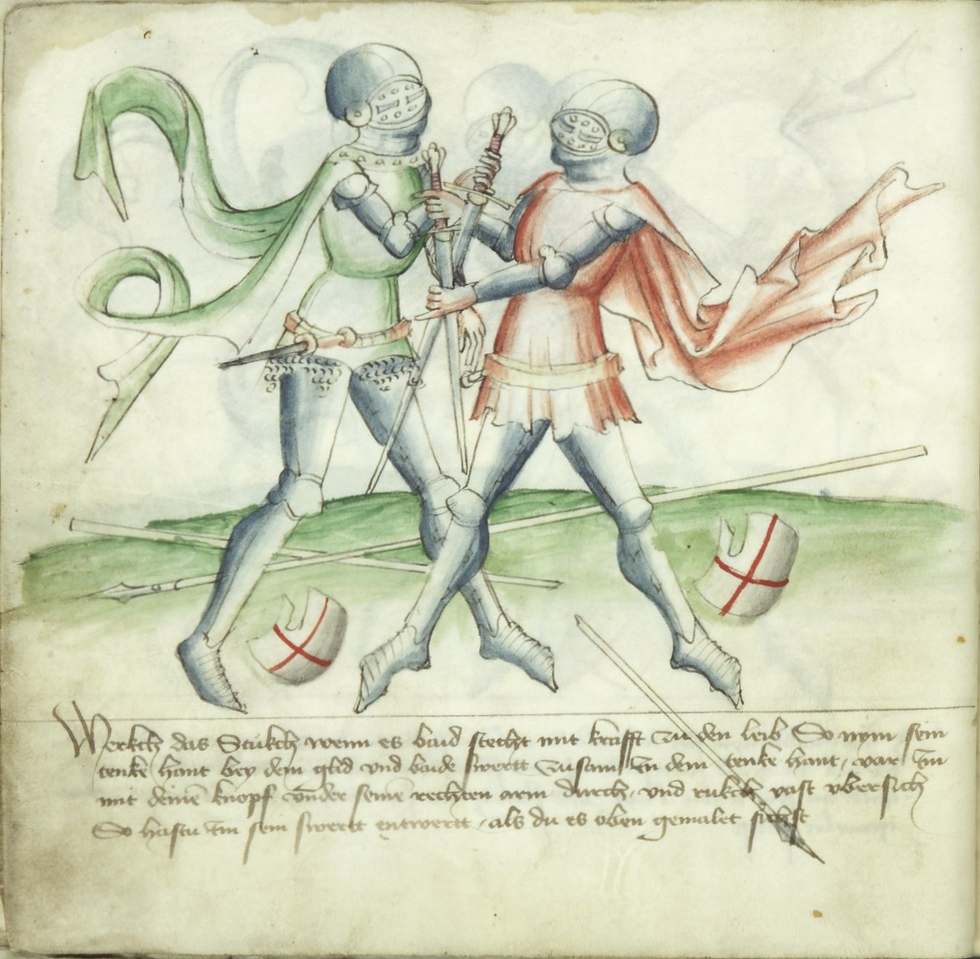 Merckch das Stükch wenn es baid stecht mit krafft zu den leib So nym sein
tenke hant bey dem glid vnd baide swertt zusam In dein tenke hant, var Im
mit deinē knopf vnder seinē rechten arm durch, vnd rukch vast vbersich
So hastu Im sein swertt entwertt, als du es oben gemalet sichst